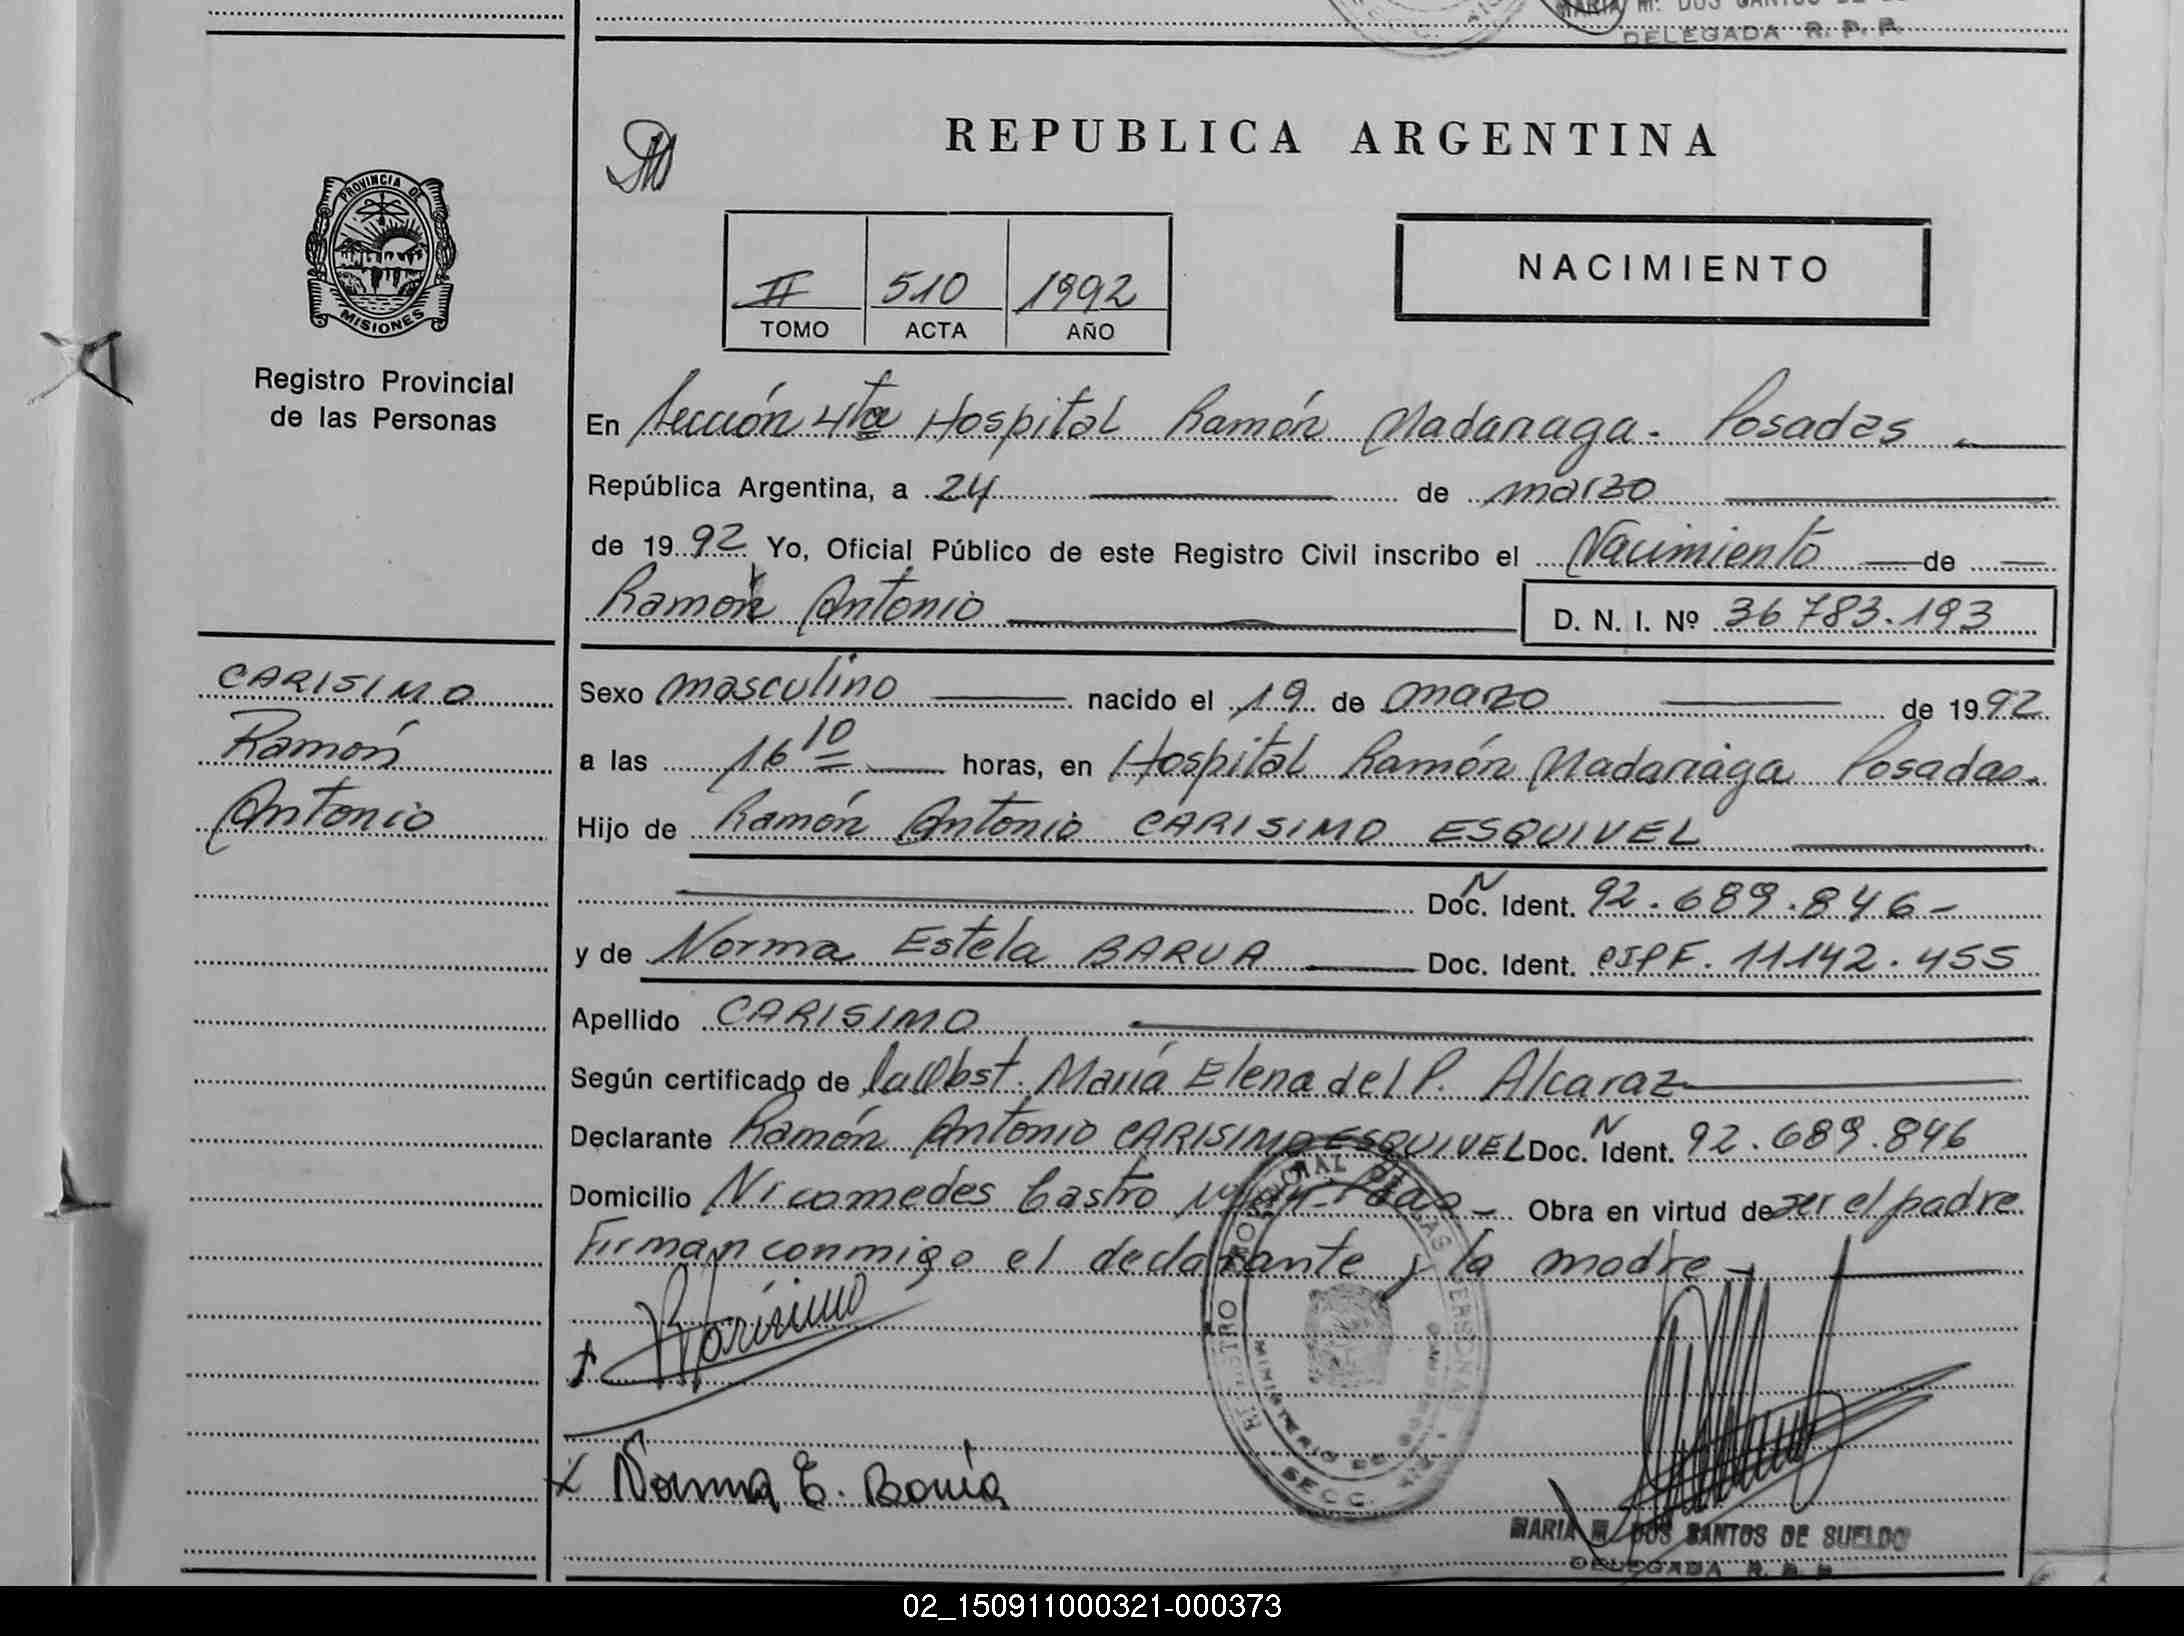 MARIA M. DOS SANTOS DE
DELEGADA R. P. P.
REPUBLICA ARGENTINA
PROVINCIA DE
MISIONES
Registro Provincial
de las Personas
II 510 1992
TOMO ACTA AÑO
NACIMIENTO
En Sección 4ta Hospital Ramón Madariaga. Posadas
República Argentina, a 24 de marzo
de 1992 Yo, Oficial Público de este Registro Civil inscribo el Nacimiento de
Ramón Antonio D. N. I. Nº 36 783.193
CARISIMO
Ramón
Antonio
Sexo masculino nacido el 19 de marzo de 1992
a las 16 10 horas, en Hospital Ramón Madariaga Posadas.
Hijo de Ramón Antonio CARISIMO ESQUIVEL
Doc. Ident. N 92.689.846-
y de Norma Estela BARUA Doc. Ident. CIPF. 11142.455
Apellido CARISIMO
Según certificado de la Obst. María Elena del P. Alcaraz
Declarante Ramón Antonio CARISIMO ESQUIVEL Doc. Ident. N 92.689.846
Domicilio Nicomedes Castro Obra en virtud de ser el padre
Firman conmigo el declarante y la madre
REGISTRO PROVINCIAL DE LAS PERSONAS
MINISTERIO DE
SECC.
Norma E. Barúa
MARIA M. DOS SANTOS DE SUELDO
DELEGADA R. P. P.
02_150911000321-000373